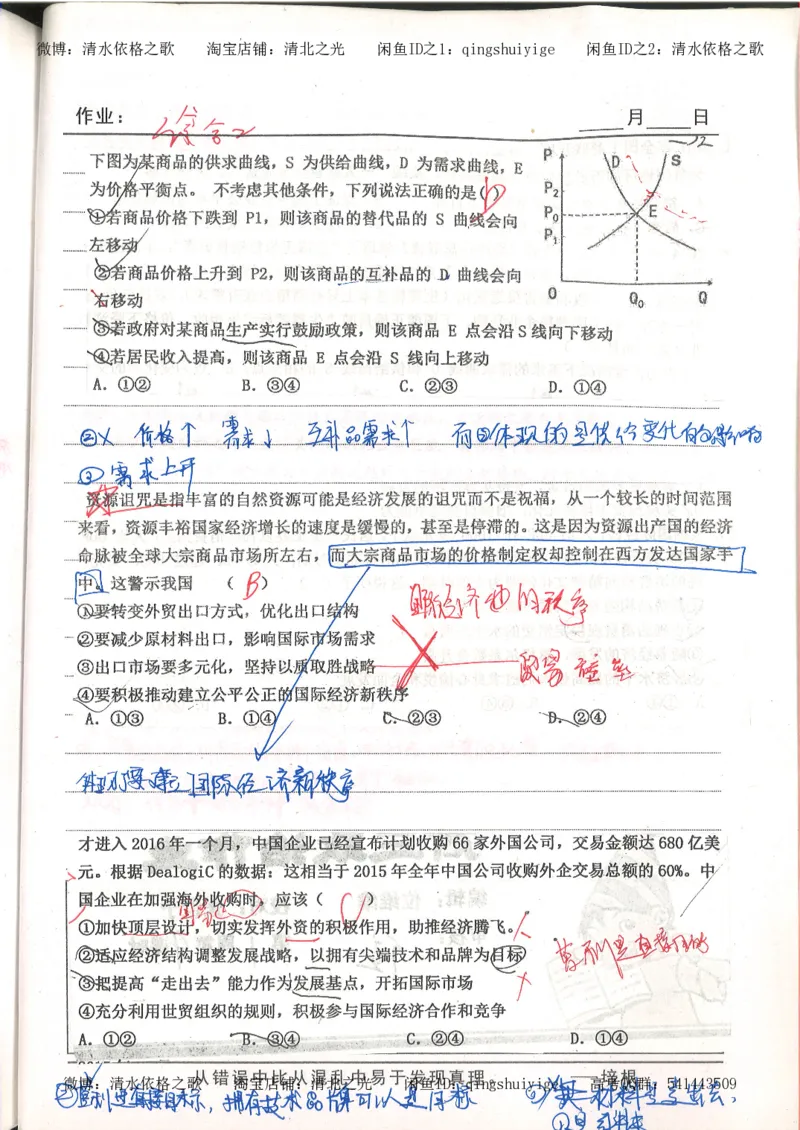 微博：清水依格之歌 淘宝店铺：清北之光 闲鱼ID之1：qingshuiyige 闲鱼ID之2：清水依格之歌
作业： 月 日
综合二
下图为某商品的供求曲线，S 为供给曲线，D 为需求曲线，E
为价格平衡点。 不考虑其他条件，下列说法正确的是( )
①若商品价格下跌到 P1，则该商品的替代品的 S 曲线会向
左移动
②若商品价格上升到 P2，则该商品的互补品的 D 曲线会向
右移动
③若政府对某商品生产实行鼓励政策，则该商品 E 点会沿 S 线向下移动
④若居民收入提高，则该商品 E 点会沿 S 线向上移动
A. ①② B. ③④ C. ②③ D. ①④
P D S
P2
P0 E
P1
0 Q0 Q
②X 价格↑ 需求↓ 互补品需求↑ 而 体现的是供给变化的影响
③需求上升
资源诅咒是指丰富的自然资源可能是经济发展的诅咒而不是祝福，从一个较长的时间范围
来看，资源丰裕国家经济增长的速度是缓慢的，甚至是停滞的。这是因为资源出产国的经济
命脉被全球大宗商品市场所左右，而大宗商品市场的价格制定权却控制在西方发达国家手
中。这警示我国 （ B ）
①要转变外贸出口方式，优化出口结构
②要减少原材料出口，影响国际市场需求
③出口市场要多元化，坚持以质取胜战略
④要积极推动建立公平公正的国际经济新秩序
A. ①③ B. ①④ C. ②③ D. ②④
的秩序
体现要建立国际经济新秩序
才进入 2016 年一个月，中国企业已经宣布计划收购 66 家外国公司，交易金额达 680 亿美
元。根据 DealogiC 的数据：这相当于 2015 年全年中国公司收购外企交易总额的 60%。中
国企业在加强海外收购时，应该（ C ）
①加快顶层设计，切实发挥外资的积极作用，助推经济腾飞。
②适应经济结构调整发展战略，以拥有尖端技术和品牌为目标
③把提高“走出去”能力作为发展基点，开拓国际市场
④充分利用世贸组织的规则，积极参与国际经济合作和竞争
A. ①② B. ③④ C. ②④ D. ①④
从错误中比从混乱中易于发现真理 ——培根
微博：清水依格之歌 淘宝店铺：清北之光 闲鱼ID：qingshuiyige 高考QQ群：541443509
目标，拥有技术品牌可以是目标